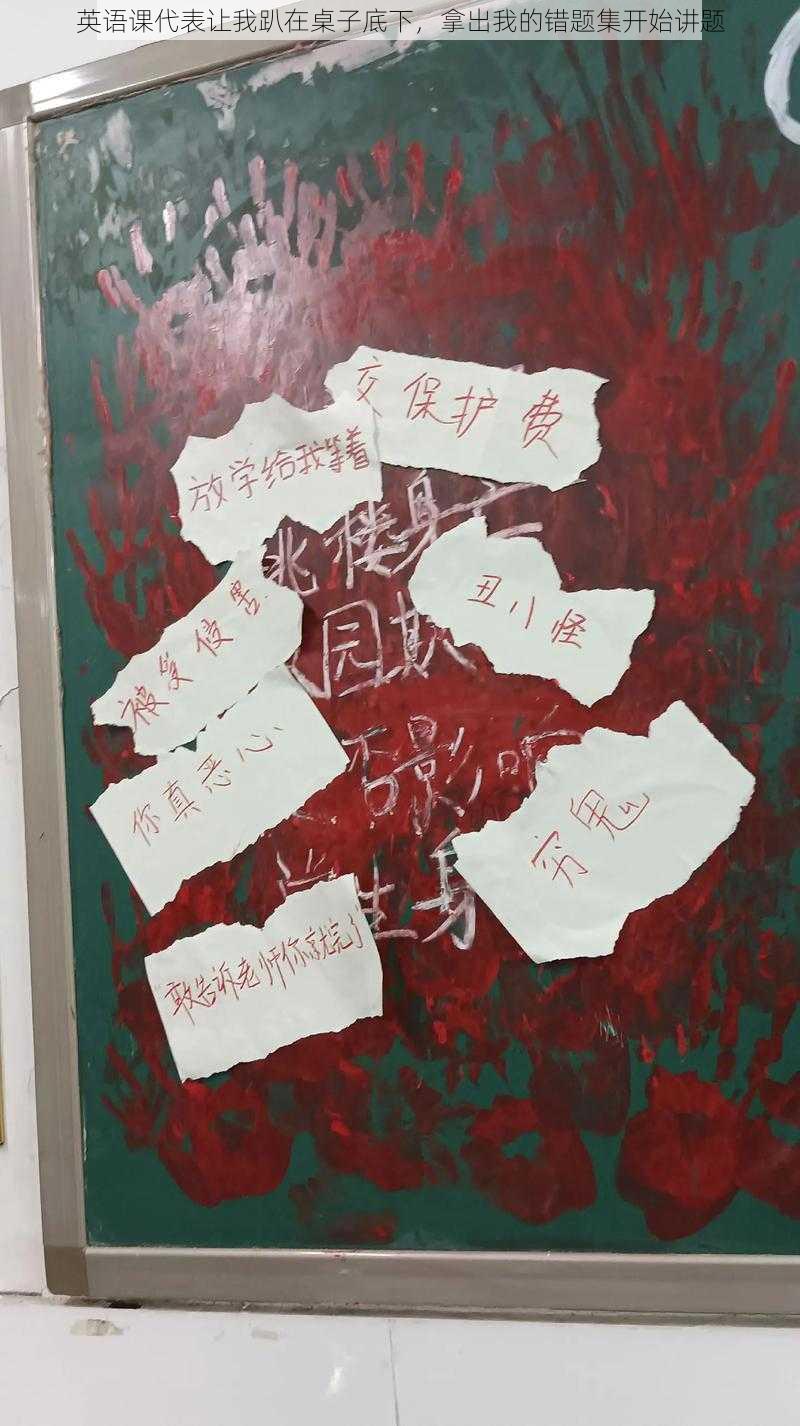 英语课代表让我趴在桌子底下，拿出我的错题集开始讲题
交保护费
放学给我等着
跳楼身亡
丑八怪
被受侵害
园欺
你真恶心
否影响
穷鬼
生身
敢告诉老师你就完了